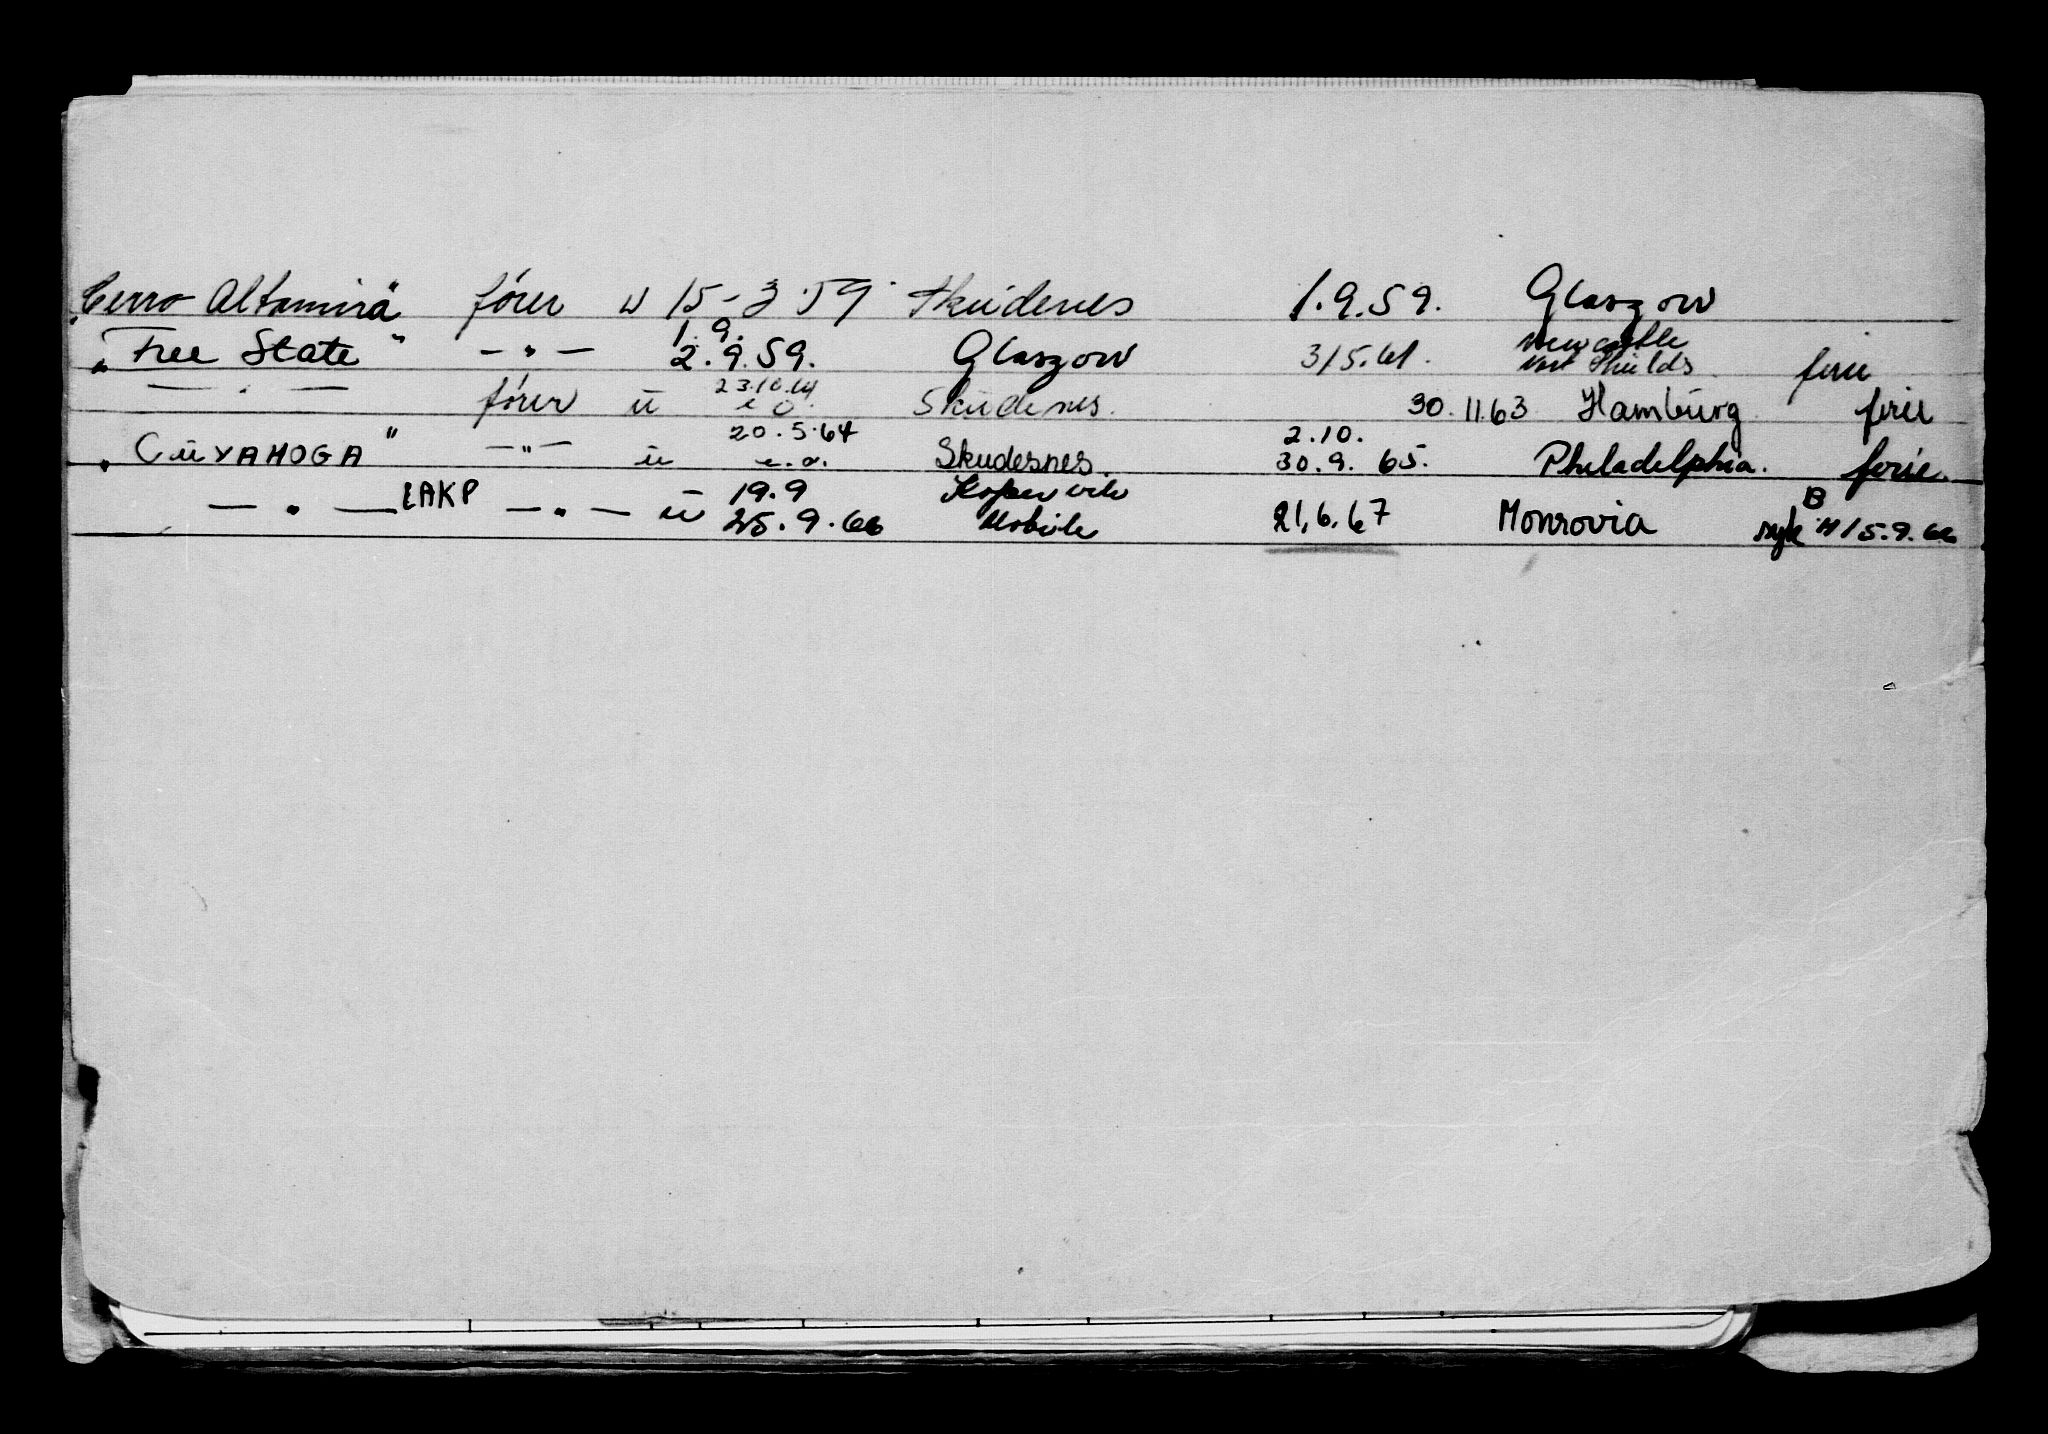 "Cerro Altamira" fører u 15-3.59. Skudenes 1.9.59. Glasgow
1.9.
"Free State" — " — 2.9.59. Glasgow 3/5.61. Newcastle Shields ferie
— " — fører u 23.10. e.o. Skudenes. 30.11.63 Hamburg ferie
"CUYAHOGA" — " — u 20.5.64 e.o. Skudesnes. 2.10. 30.9.65. Philadelphia. ferie
— " — LAKP — " — u 19.9 25.9.66 Kopervik Mobile 21.6.67 Monrovia syk B 15.9.66